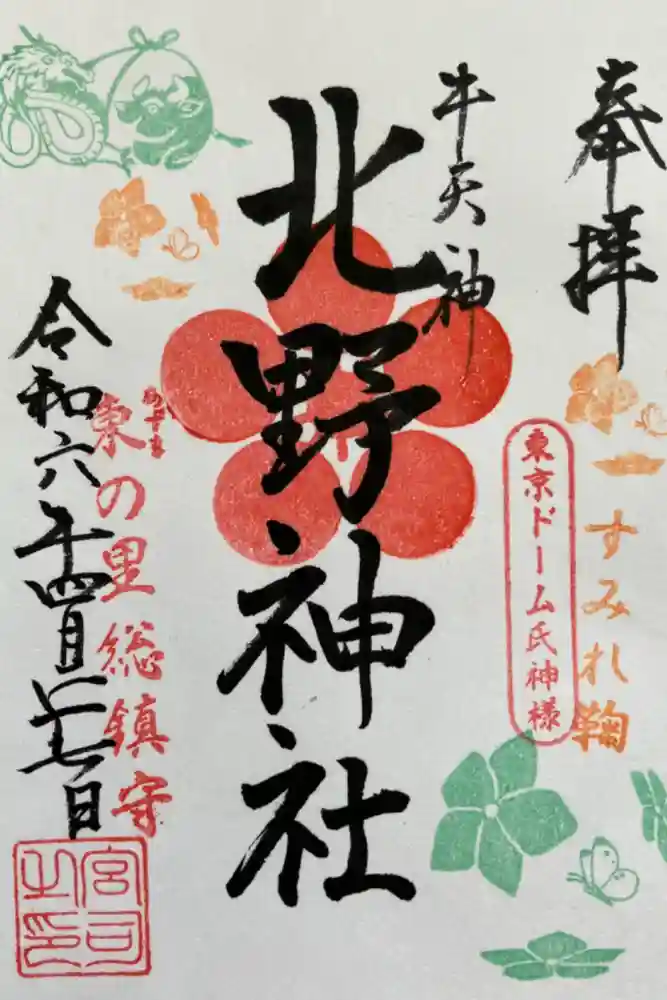 奉拝
すみれ鞠
東京ドーム氏神様
牛天神
北野神社
あずま
東の里総鎮守
令和六年四月二七日
宮司之印